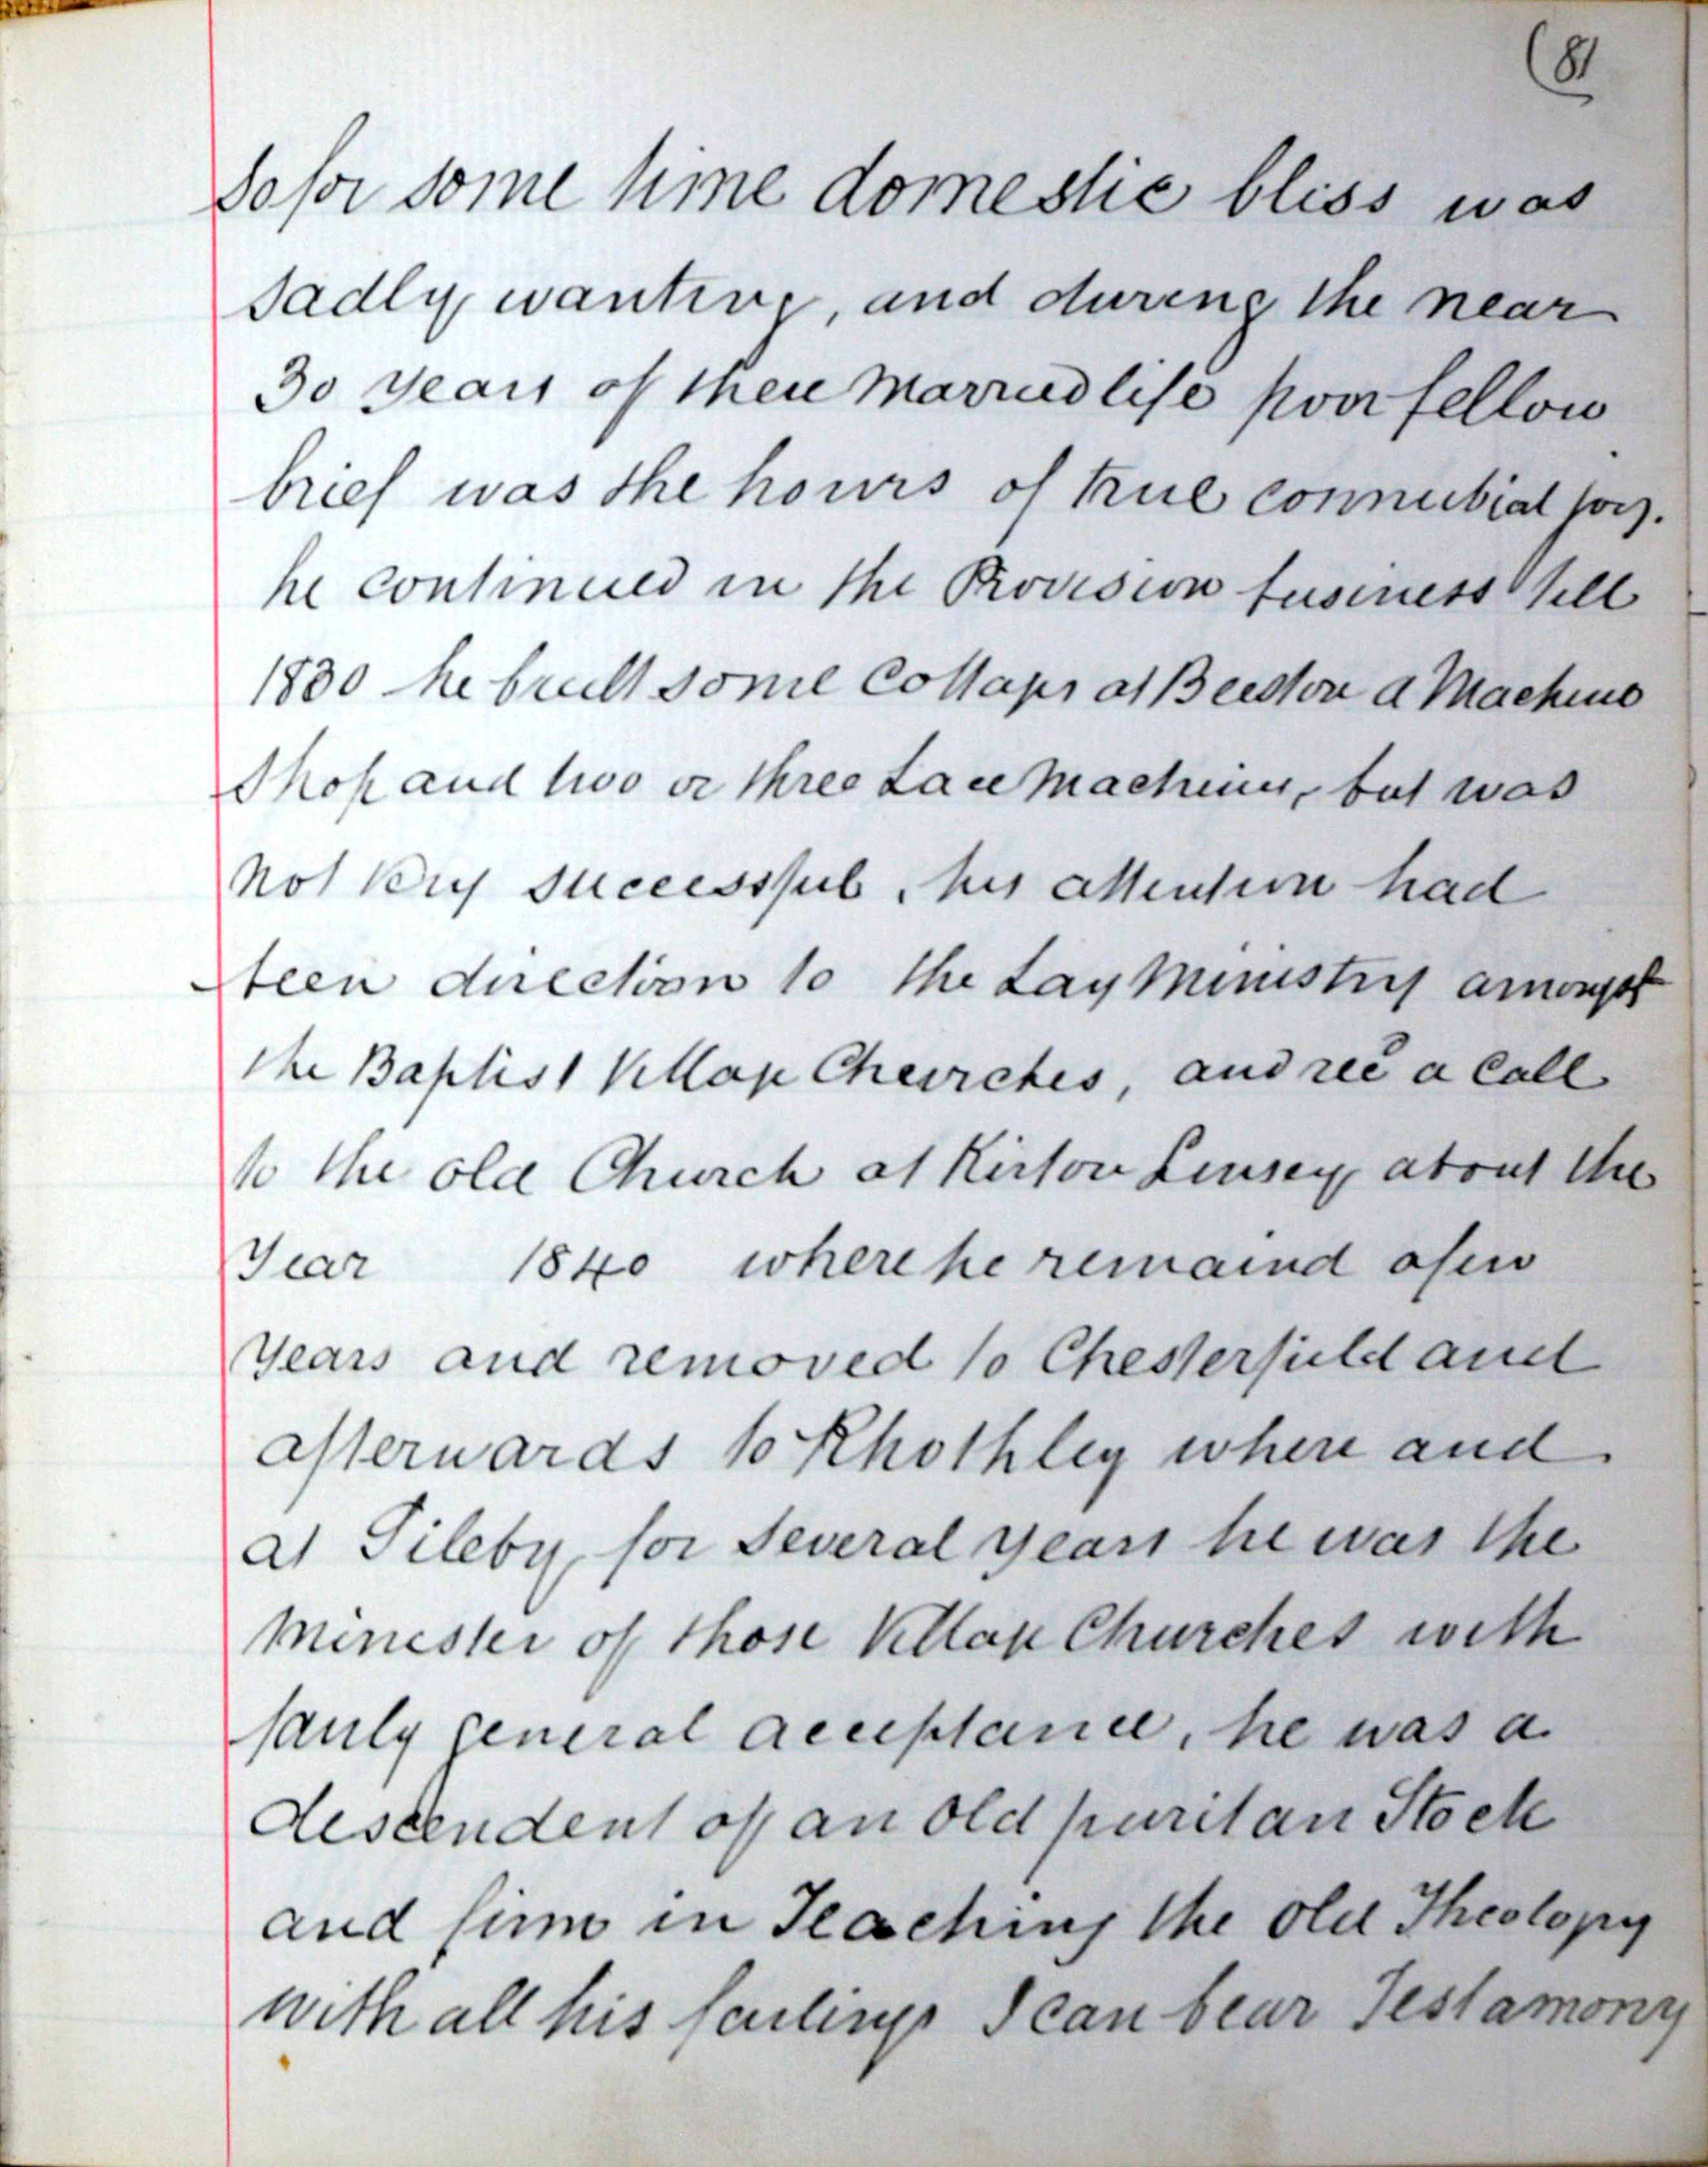 (81
So for some time domestic bliss was
sadly wanting, and during the near
30 years of there Married life poor fellow
brief was the hours of true connubial joy.
he continued in the Provision business till
1830 he built some Cottages at Beeston a Machine
Shop and two or three Lace Machines, but was
not very successful, his attention had
been direction to the Lay Ministry amongst
the Baptist Village Cheurches, and recd a Call
to the old Church at Kirton Linsey about the
Year 1840 where he remaind a few
Years and removed to Chesterfield and
afterwards to Rhothley where and
at Sileby, for Several years he was the
Minester of those Village Churches with
fairly general acceptance, he was a
descendent of an old puritan Stock
and firm in Teaching the old Theology
with all his failings I can bear Testamony